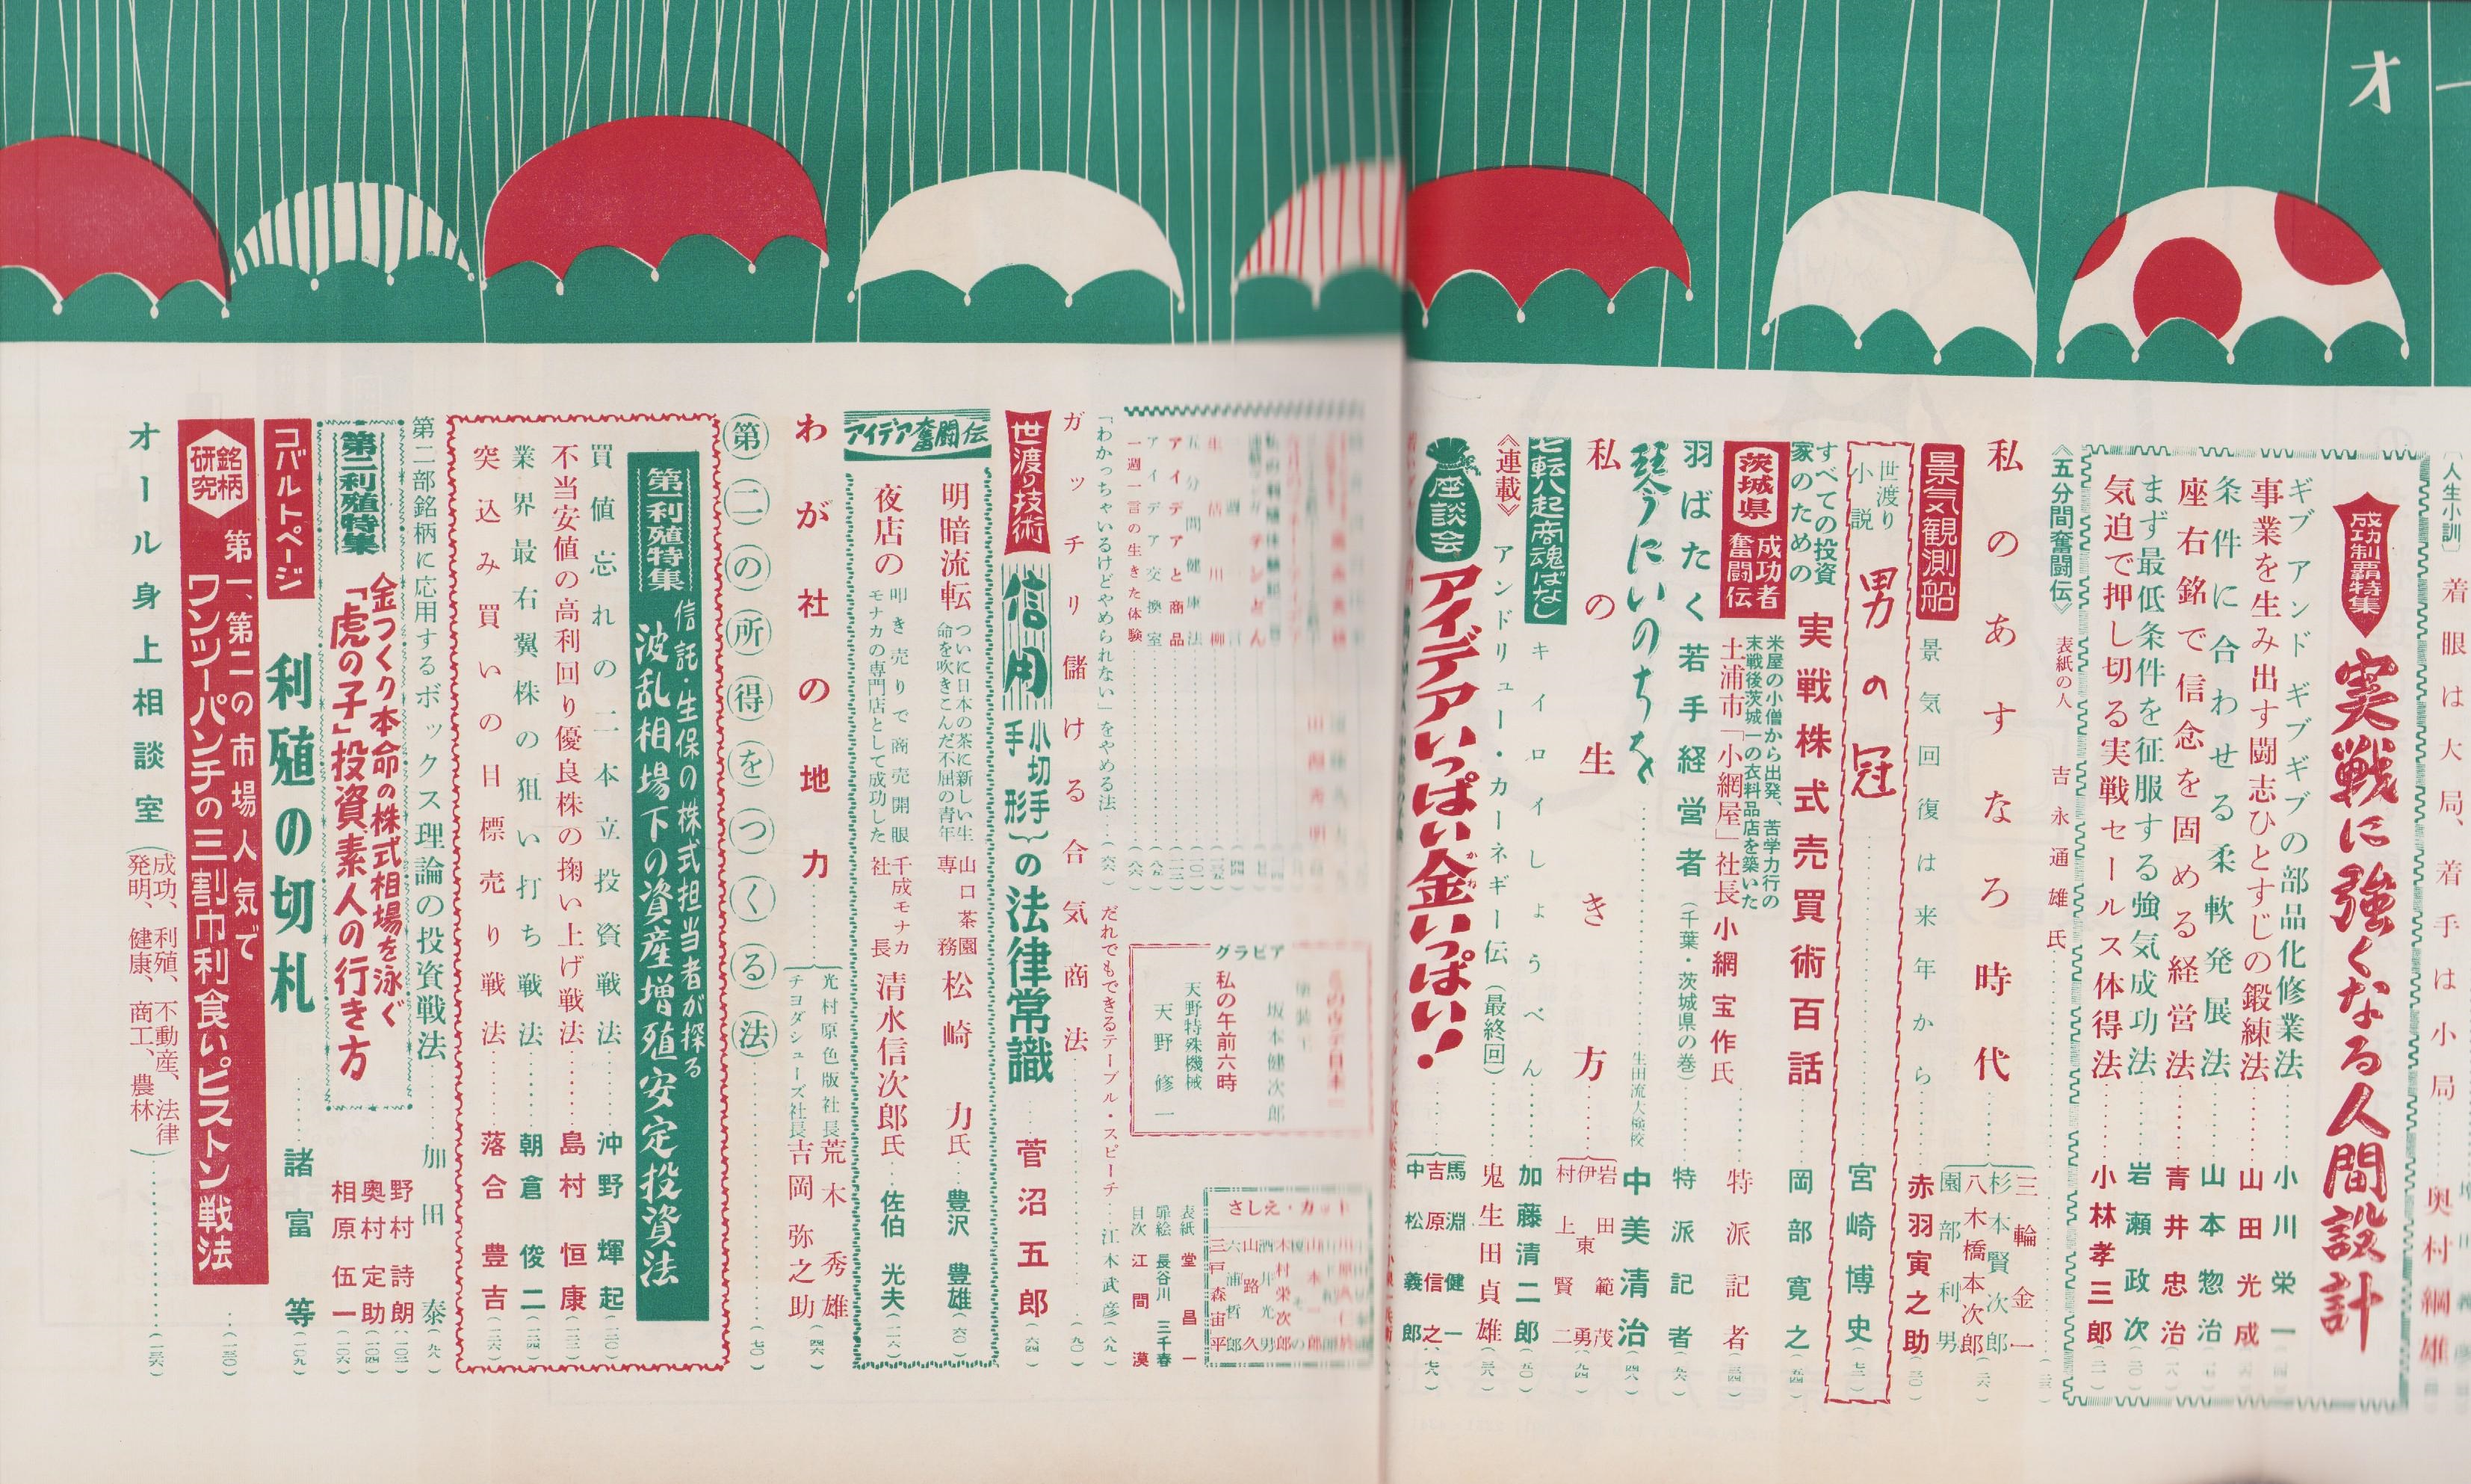 オー
〔人生小訓〕 着眼は大局、着手は小局 奥村綱雄
成功制覇特集 実戦に強くなる人間設計
ギブアンドギブギブの部品化修業法 小川栄一
事業を生み出す闘志ひとすじの鍛練法 山田光成
条件に合わせる柔軟発展法 山本惣治
座右銘で信念を固める経営法 青井忠治
まず最低条件を征服する強気成功法 岩瀬政次
気迫で押し切る実戦セールス体得法 小林孝三郎
《五分間奮闘伝》 表紙の人 吉永通雄氏
私のあすなろ時代
三輪金一
杉本賢次郎
八木橋本次郎
園部利男
景気観測船 景気回復は来年から 赤羽寅之助
世渡り小説 男の冠 宮崎博史
すべての投資家のための 実戦株式売買術百話 岡部寛之
茨城県 成功者奮闘伝
米屋の小僧から出発、苦学力行の末戦後茨城一の衣料品店を築いた
土浦市「小網屋」社長 小網宝作氏 特派記者
羽ばたく若手経営者(千葉・茨城県の巻) 特派記者
琴にいのちを 生田流大検校 中美清治
私の生き方
岩田範茂
伊東勇
村上賢二
七転八起商魂ばなし キイロイしょうべん 加藤清二郎
《連載》 アンドリュー・カーネギー伝(最終回) 鬼生田貞雄
座談会 アイデアいっぱい金いっぱい!
馬淵健一
吉原信之
中松義郎
グラビア
坂本健次郎
私の午前六時
天野特殊機械
天野修一
さしえ・カット
木村栄次郎
山路久
三戸森宙平
表紙 堂昌一
扉絵 長谷川三千春
目次 江間漠
アイデアと商品
アイデア交換室
一週一言の生きた体験
「わかっちゃいるけどやめられない」をやめる法 (六六)
だれでもできるテーブル・スピーチ 江木武彦 (八九)
ガッチリ儲ける合気商法 (九〇)
世渡り技術 信用 小切手 手形 の法律常識 菅沼五郎 (六四)
アイデア奮闘伝
明暗流転 ついに日本の茶に新しい生命を吹きこんだ不屈の青年
山口茶園専務 松崎力氏 豊沢豊雄 (六〇)
夜店の 叩き売りで商売開眼 モナカの専門店として成功した
千成モナカ社長 清水信次郎氏 佐伯光夫
わが社の地力
光村原色版社長 荒木秀雄
チヨダシューズ社長 吉岡弥之助 (四六)
第二の所得をつくる法 (七〇)
第一利殖特集 信託・生保の株式担当者が探る
波乱相場下の資産増殖安定投資法
買値忘れの二本立投資戦法 沖野輝起
不当安値の高利回り優良株の掬い上げ戦法 島村恒康
業界最右翼株の狙い打ち戦法 朝倉俊二
突込み買いの目標売り戦法 落合豊吉
第二部銘柄に応用するボックス理論の投資戦法 加田泰 (九八)
第二利殖特集
金つくり本命の株式相場を泳ぐ
「虎の子」投資素人の行き方
野村詩朗
奥村定助
相原伍一
コバルトページ 利殖の切札 諸富等
銘柄研究 第一、第二の市場人気で
ワンツーパンチの三割巾利食いピストン戦法
オール身上相談室(成功、利殖、不動産、法律 発明、健康、商工、農林)